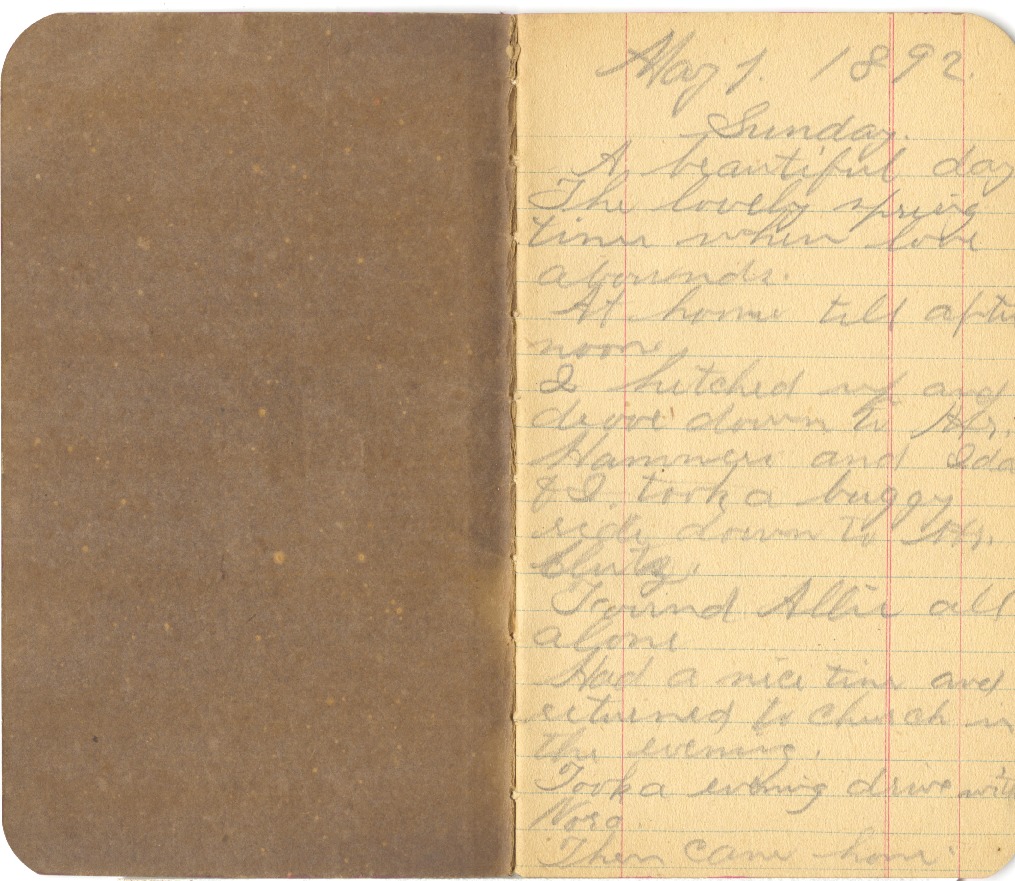 May 1. 1892.
Sunday.
A beautiful day
The lovely spring
time when love
abounds.
At home till after
noon,
I hitched up and
drove down to Mr.
Hammers and Ida
& I took a buggy
ride down to Mr.
Clutz.
Found Allie all
alone
Had a nice time and
returned to church in
the evening.
Took a evening drive with
Nora
Then came home